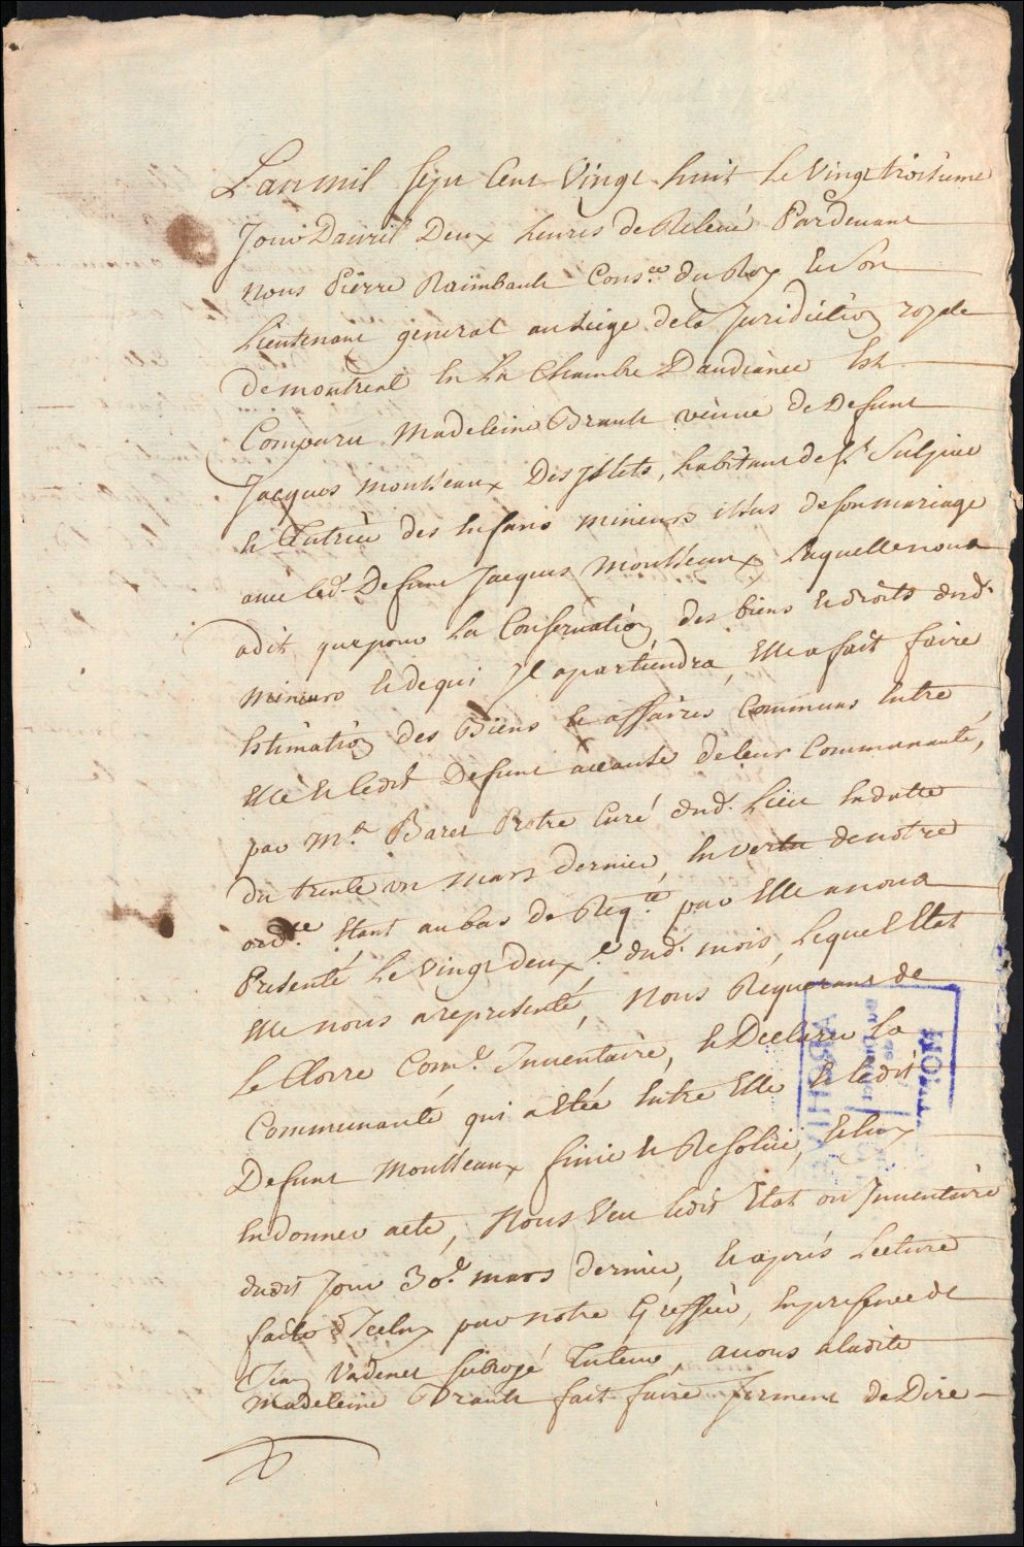 L'an mil sept cent vingt huit le vingt troisieme
Jour Davril Deux heures de Relevé Pardevant
nous Pierre Raimbault Cons.er du Roy et son
Lieutenant general au siege de la Juridiction royale
de montreal en la Chambre D'audiance Est
Comparu Madeleine Brault veuve de Defunt
Jacques monsseaux Desjllets, habitant de s.t Sulpice
et Tutrice des Enfans mineurs issus de son mariage
avec led. Defunt Jacques monsseaux Laquelle nous
a dit que pour La Conservation des biens et droits desd.
mineurs et de qui Jl apartiendra, Elle a fait faire
Estimation des Biens et affaires Communes Entre
Elle et ledit Defunt a cause de leur Communauté,
par M.r Baret Pretre Curé dud. Lieu En datte
du trente un mars dernier, en vertu de notre
ord.ce Etant au bas de Req.te par Elle a nous
Presenté le vingt deux.e dud. mois, Lequel Etat
Elle nous a representé, Nous Requerant de
Le Clorre Com.e Inventaire, et Declarer La
Communauté qui a Eté Entre Elle et ledit
Defunt Monsseaux finie et Resolue, et luy
En donner acte, Nous Veu ledit Etat ou Inventaire
dudit Jour 30.e mars dernier, et aprés Lecture
faite d'Iceluy par notre Greffier, En presence de
subrogé Tuteur, avons a ladite
Madeleine Brault fait faire serment de Dire